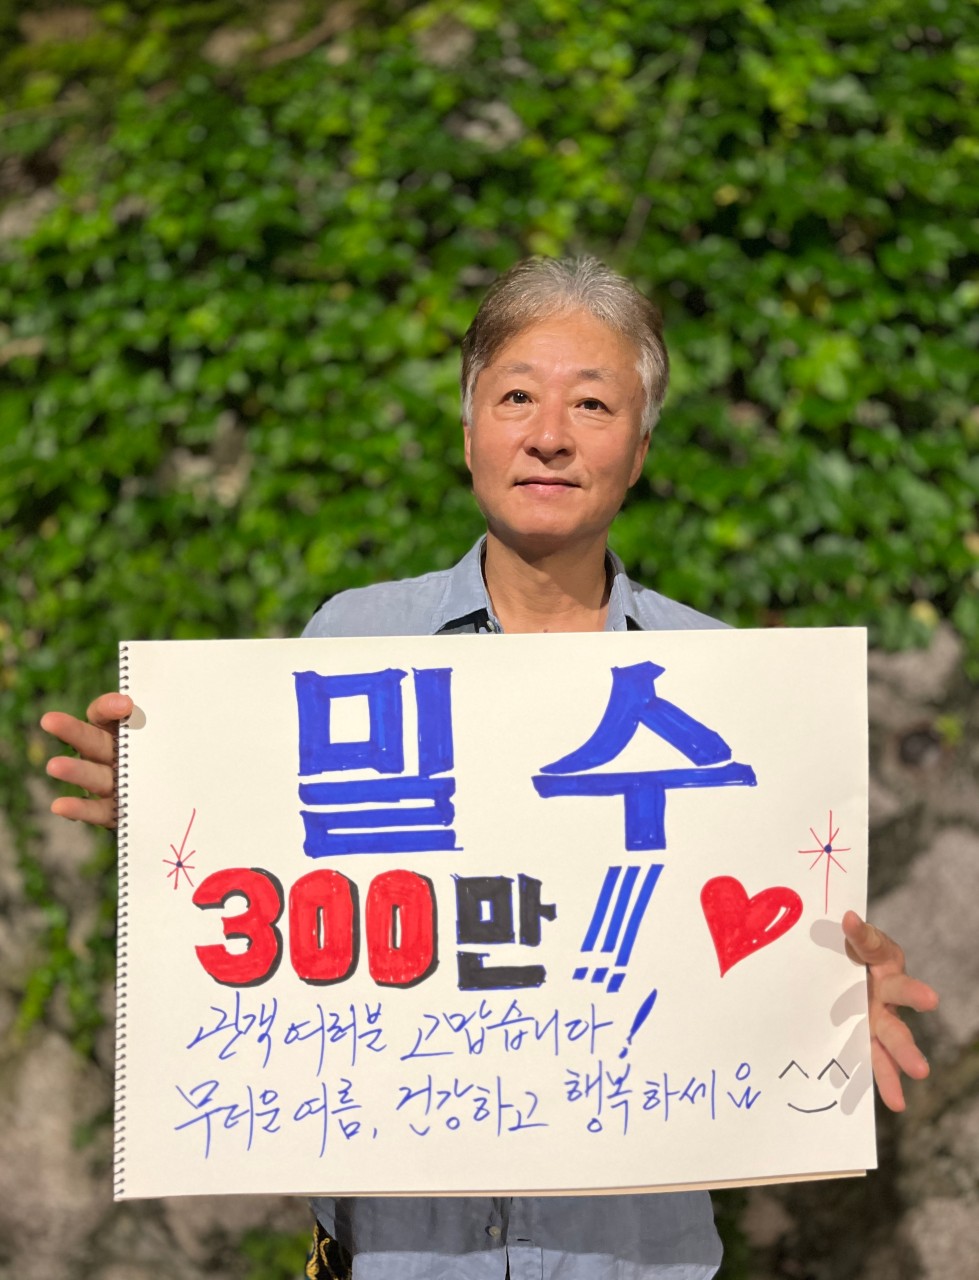 밀수
300만!!!
관객 여러분 고맙습니다!
무더운 여름, 건강하고 행복하세요